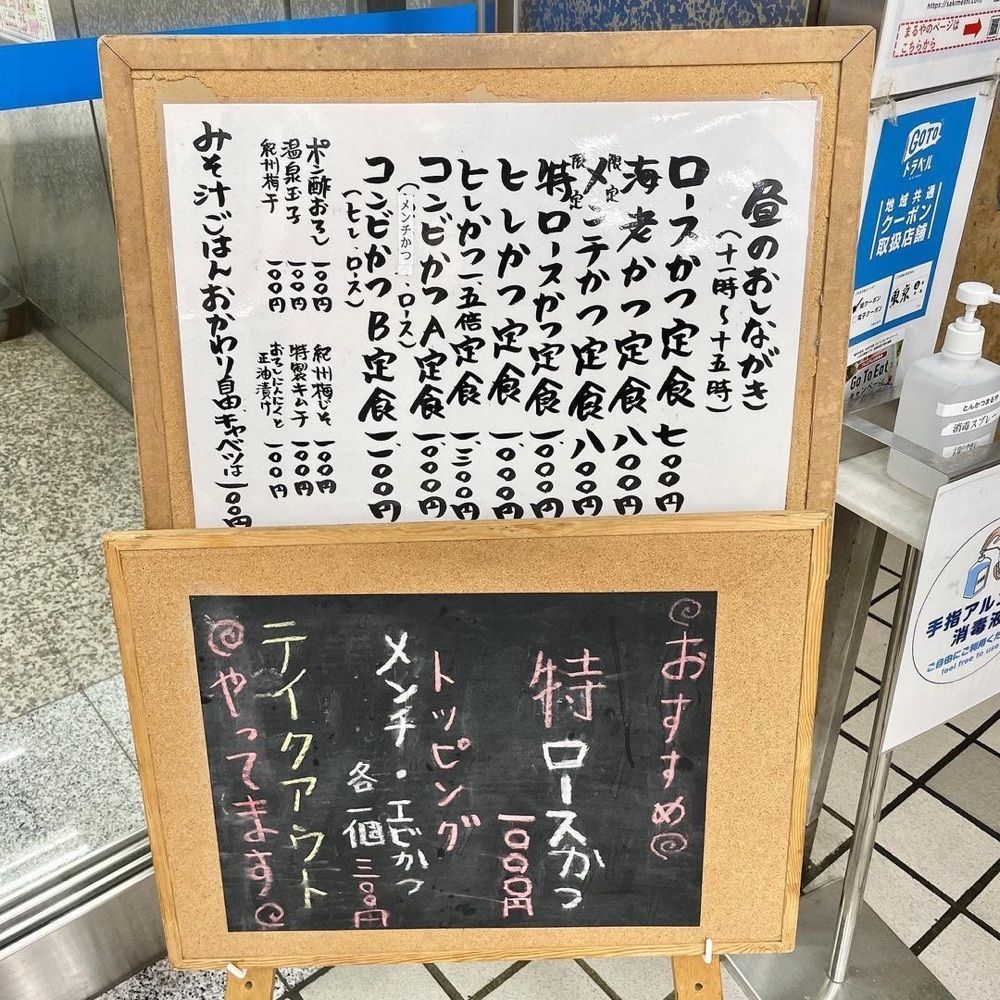 昼のおしながき
（十一時〜十五時）
ロースかつ定食 七〇〇円
海老かつ定食 八〇〇円
限定 メンチかつ定食 八〇〇円
限定 特ロースかつ定食 一、〇〇〇円
ヒレかつ定食 一、〇〇〇円
ヒレかつ一.五倍定食 一、三〇〇円
コンビかつA定食 一、〇〇〇円
（メンチかつ、ロース）
コンビかつB定食 一、一〇〇円
（ヒレ、ロース）
ポン酢おろし 一〇〇円
温泉玉子 一〇〇円
紀州梅干 一〇〇円
紀州梅じそ 一〇〇円
特製キムチ 一〇〇円
おろしにんにくと
正油漬け 一〇〇円
みそ汁ごはんおかわり自由キャベツは一〇〇円
おすすめ
特ロースかつ
一〇〇〇円
トッピング
メンチ・エビかつ
各一個 三〇〇円
テイクアウト
やってます
https://sakimeshi.com/
まるやのページは
こちらから
GOTO
トラベル
地域共通
クーポン
取扱店舗
東京
Go To Eat
キャンペーン
とんかつまるや
消毒スプレー
手指アルコ
消毒液
ご自由にご利用く
feel free to use